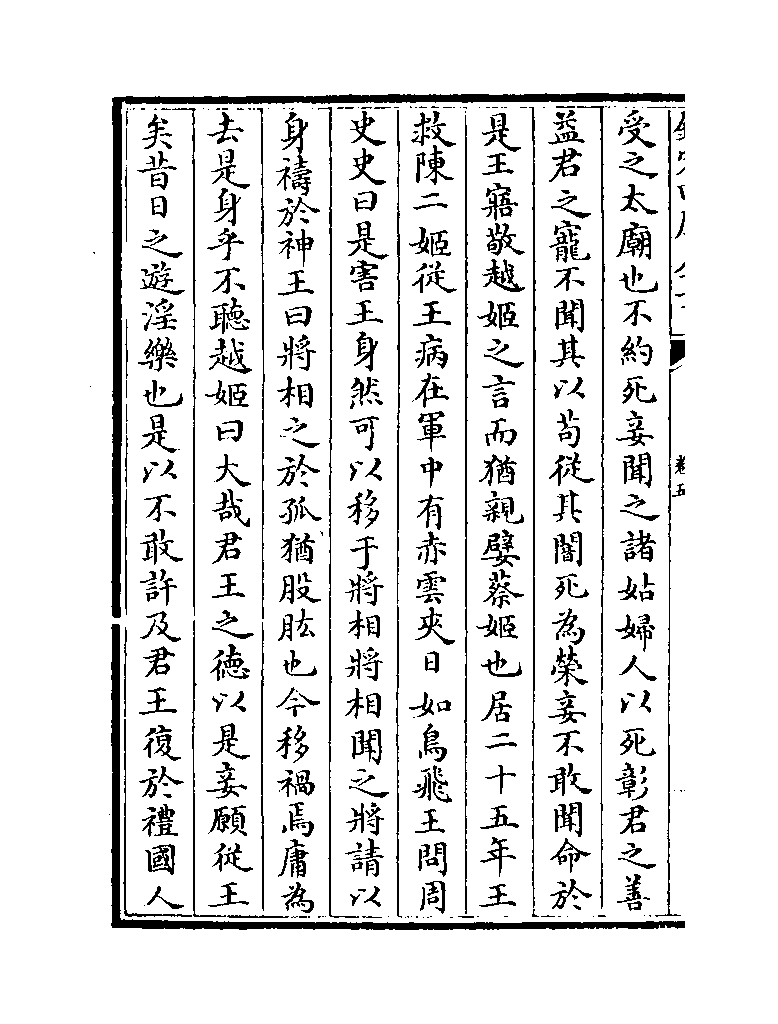 受之太廟也不約死妾聞之諸姑婦人以死彰君之善
益君之寵不聞其以苟從其闇死為榮妾不敢聞命於
是王寤敬越姬之言而猶親嬖蔡姬也居二十五年王
救陳二姬從王病在軍中有赤雲夾日如鳥飛王問周
史史曰是害王身然可以移于將相將相聞之將請以
身禱於神王曰將相之於孤猶股肱也今移禍焉庸為
去是身乎不聽越姬曰大哉君王之德以是妾願從王
矣昔日之遊淫樂也是以不敢許及君王復於禮國人
卷五